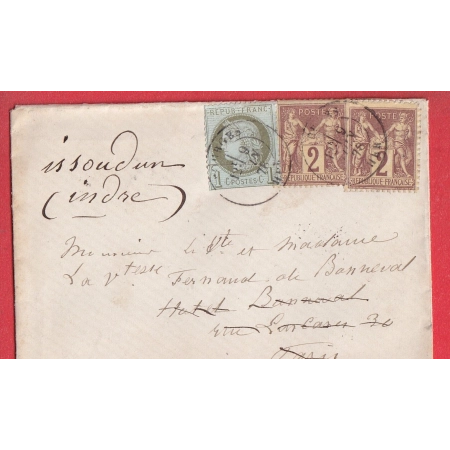 REPUB. FRANC.
POSTES
POSTE
2
REPUBLIQUE FRANÇAISE
POSTE
2
REPUBLIQUE FRANÇAISE
issoudun
(indre)
Monsieur le Vte et Madame
La Vtesse Fernand de Bonneval
Hotel Bonneval
rue Las Cases 30
Paris